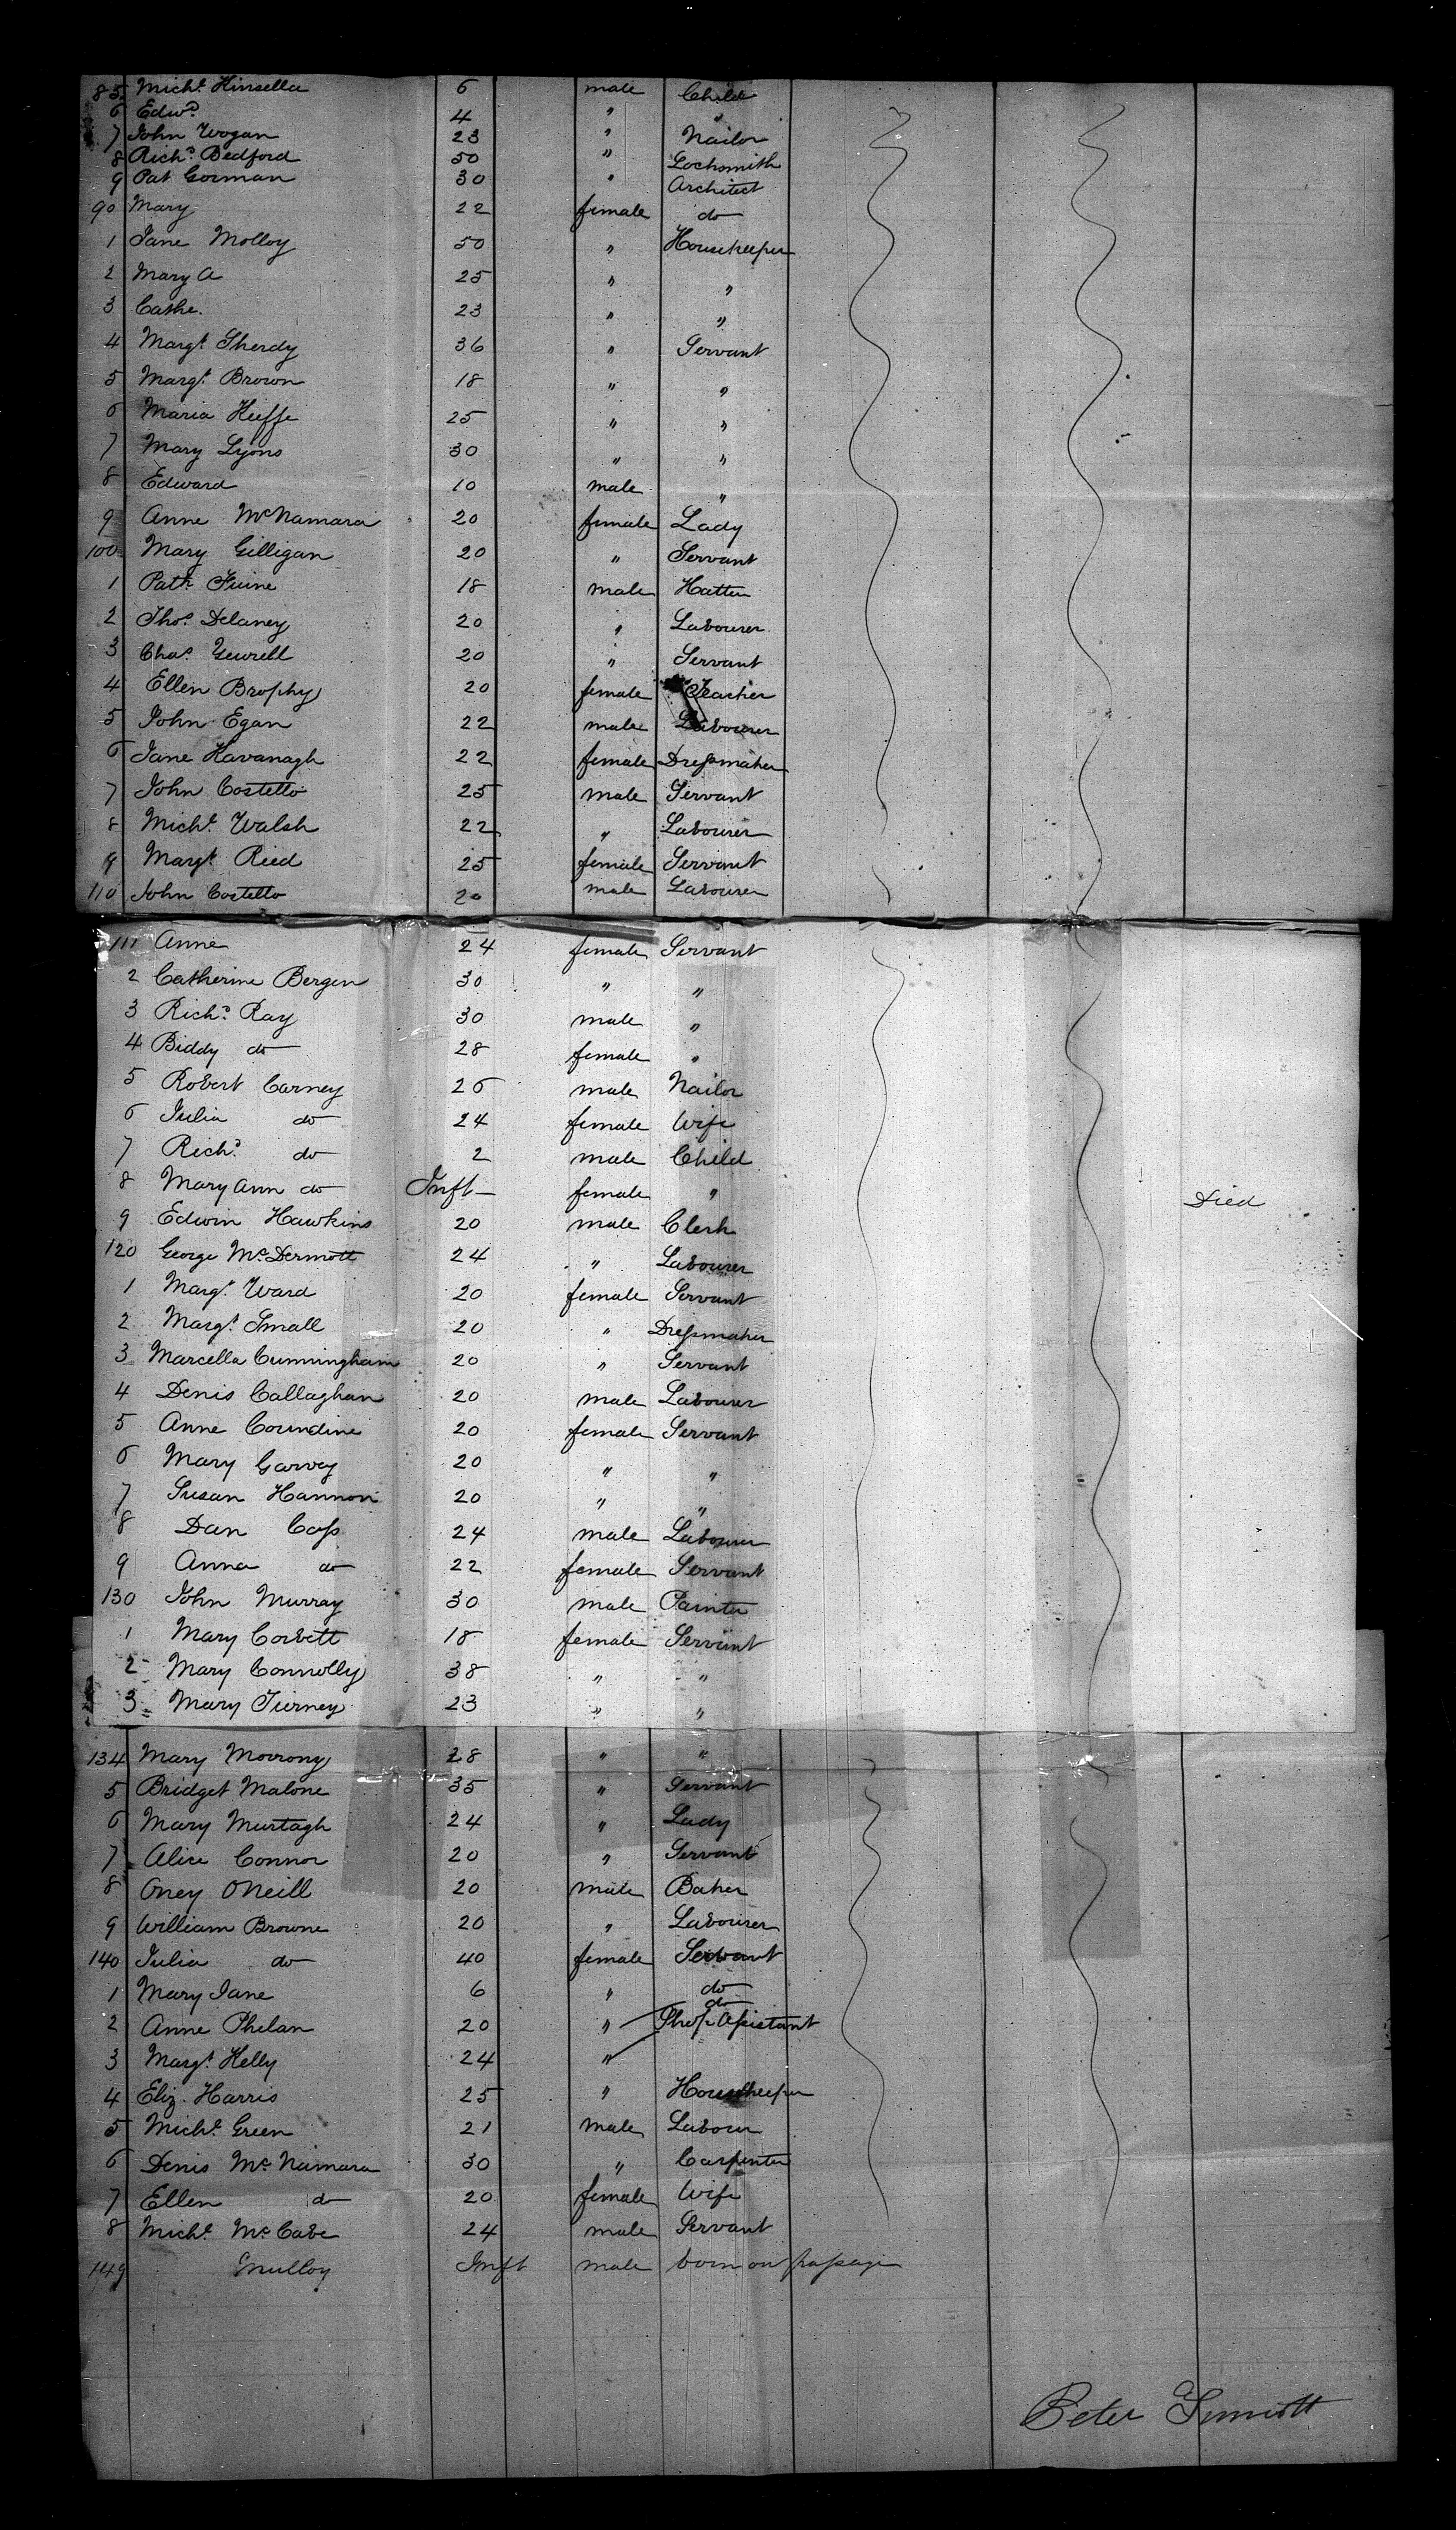 85 Michl. Kinsella 6 male Child
6 Edwd. 4 " "
7 John Wogan 23 " Nailor
8 Richd. Bedford 50 " Locksmith
9 Pat Gorman 30 " Architect
90 Mary 22 female do
1 Jane Molloy 50 " Housekeeper
2 Mary A 25 " "
3 Cathe. 23 " "
4 Margt. Sherdy 36 " Servant
5 Margt. Brown 18 " "
6 Maria Keeffe 25 " "
7 Mary Lyons 30 " "
8 Edward 10 male "
9 Anne McNamara 20 female Lady
100 Mary Gilligan 20 " Servant
1 Patk 18 male Hatter
2 Thos. Delaney 20 " Labourer
3 Chas. 20 " Servant
4 Ellen Brophy 20 female Teacher
5 John Egan 22 male Labourer
6 Jane Kavanagh 22 female Dressmaker
7 John Costello 25 male Servant
8 Michl. Walsh 22 " Labourer
9 Margt. Reed 25 female Servant
110 John Costello 20 male Labourer
111 Anne 24 female Servant
2 Catherine Bergen 30 " "
3 Richd. Ray 30 male "
4 Biddy do 28 female "
5 Robert Carney 26 male Nailor
6 Julia do 24 female Wife
7 Richd. do 2 male Child
8 Mary Ann do Inft female " Died
9 Edwin Hawkins 20 male Clerk
120 George McDermott 24 " Labourer
1 Margt. Ward 20 female Servant
2 Margt. Small 20 " Dressmaker
3 Marcella Cunningham 20 " Servant
4 Denis Callaghan 20 male Labourer
5 Anne 20 female Servant
6 Mary Garvey 20 " "
7 Susan Hannon 20 " "
8 Dan Cass 24 male Labourer
9 Anna do 22 female Servant
130 John Murray 30 male Painter
1 Mary Corbett 18 female Servant
2 Mary Connolly 38 " "
3 Mary Tierney 23 " "
134 Mary Morrony 28 " "
5 Bridget Malone 35 " Servant
6 Mary Murtagh 24 " Lady
7 Alice Connor 20 " Servant
8 Oney ONeill 20 male Baker
9 William Browne 20 " Labourer
140 Julia do 40 female Servant
1 Mary Jane 6 " do
do
2 Anne Phelan 20 " Shop Assistant
3 Margt. Kelly 24 "
4 Eliz. Harris 25 " Housekeeper
5 Michl. Green 21 male Labour
6 Denis McNamara 30 " Carpenter
7 Ellen do 20 female Wife
8 Michl. McCabe 24 male Servant
149 Mulloy Inft male born on passage
Peter